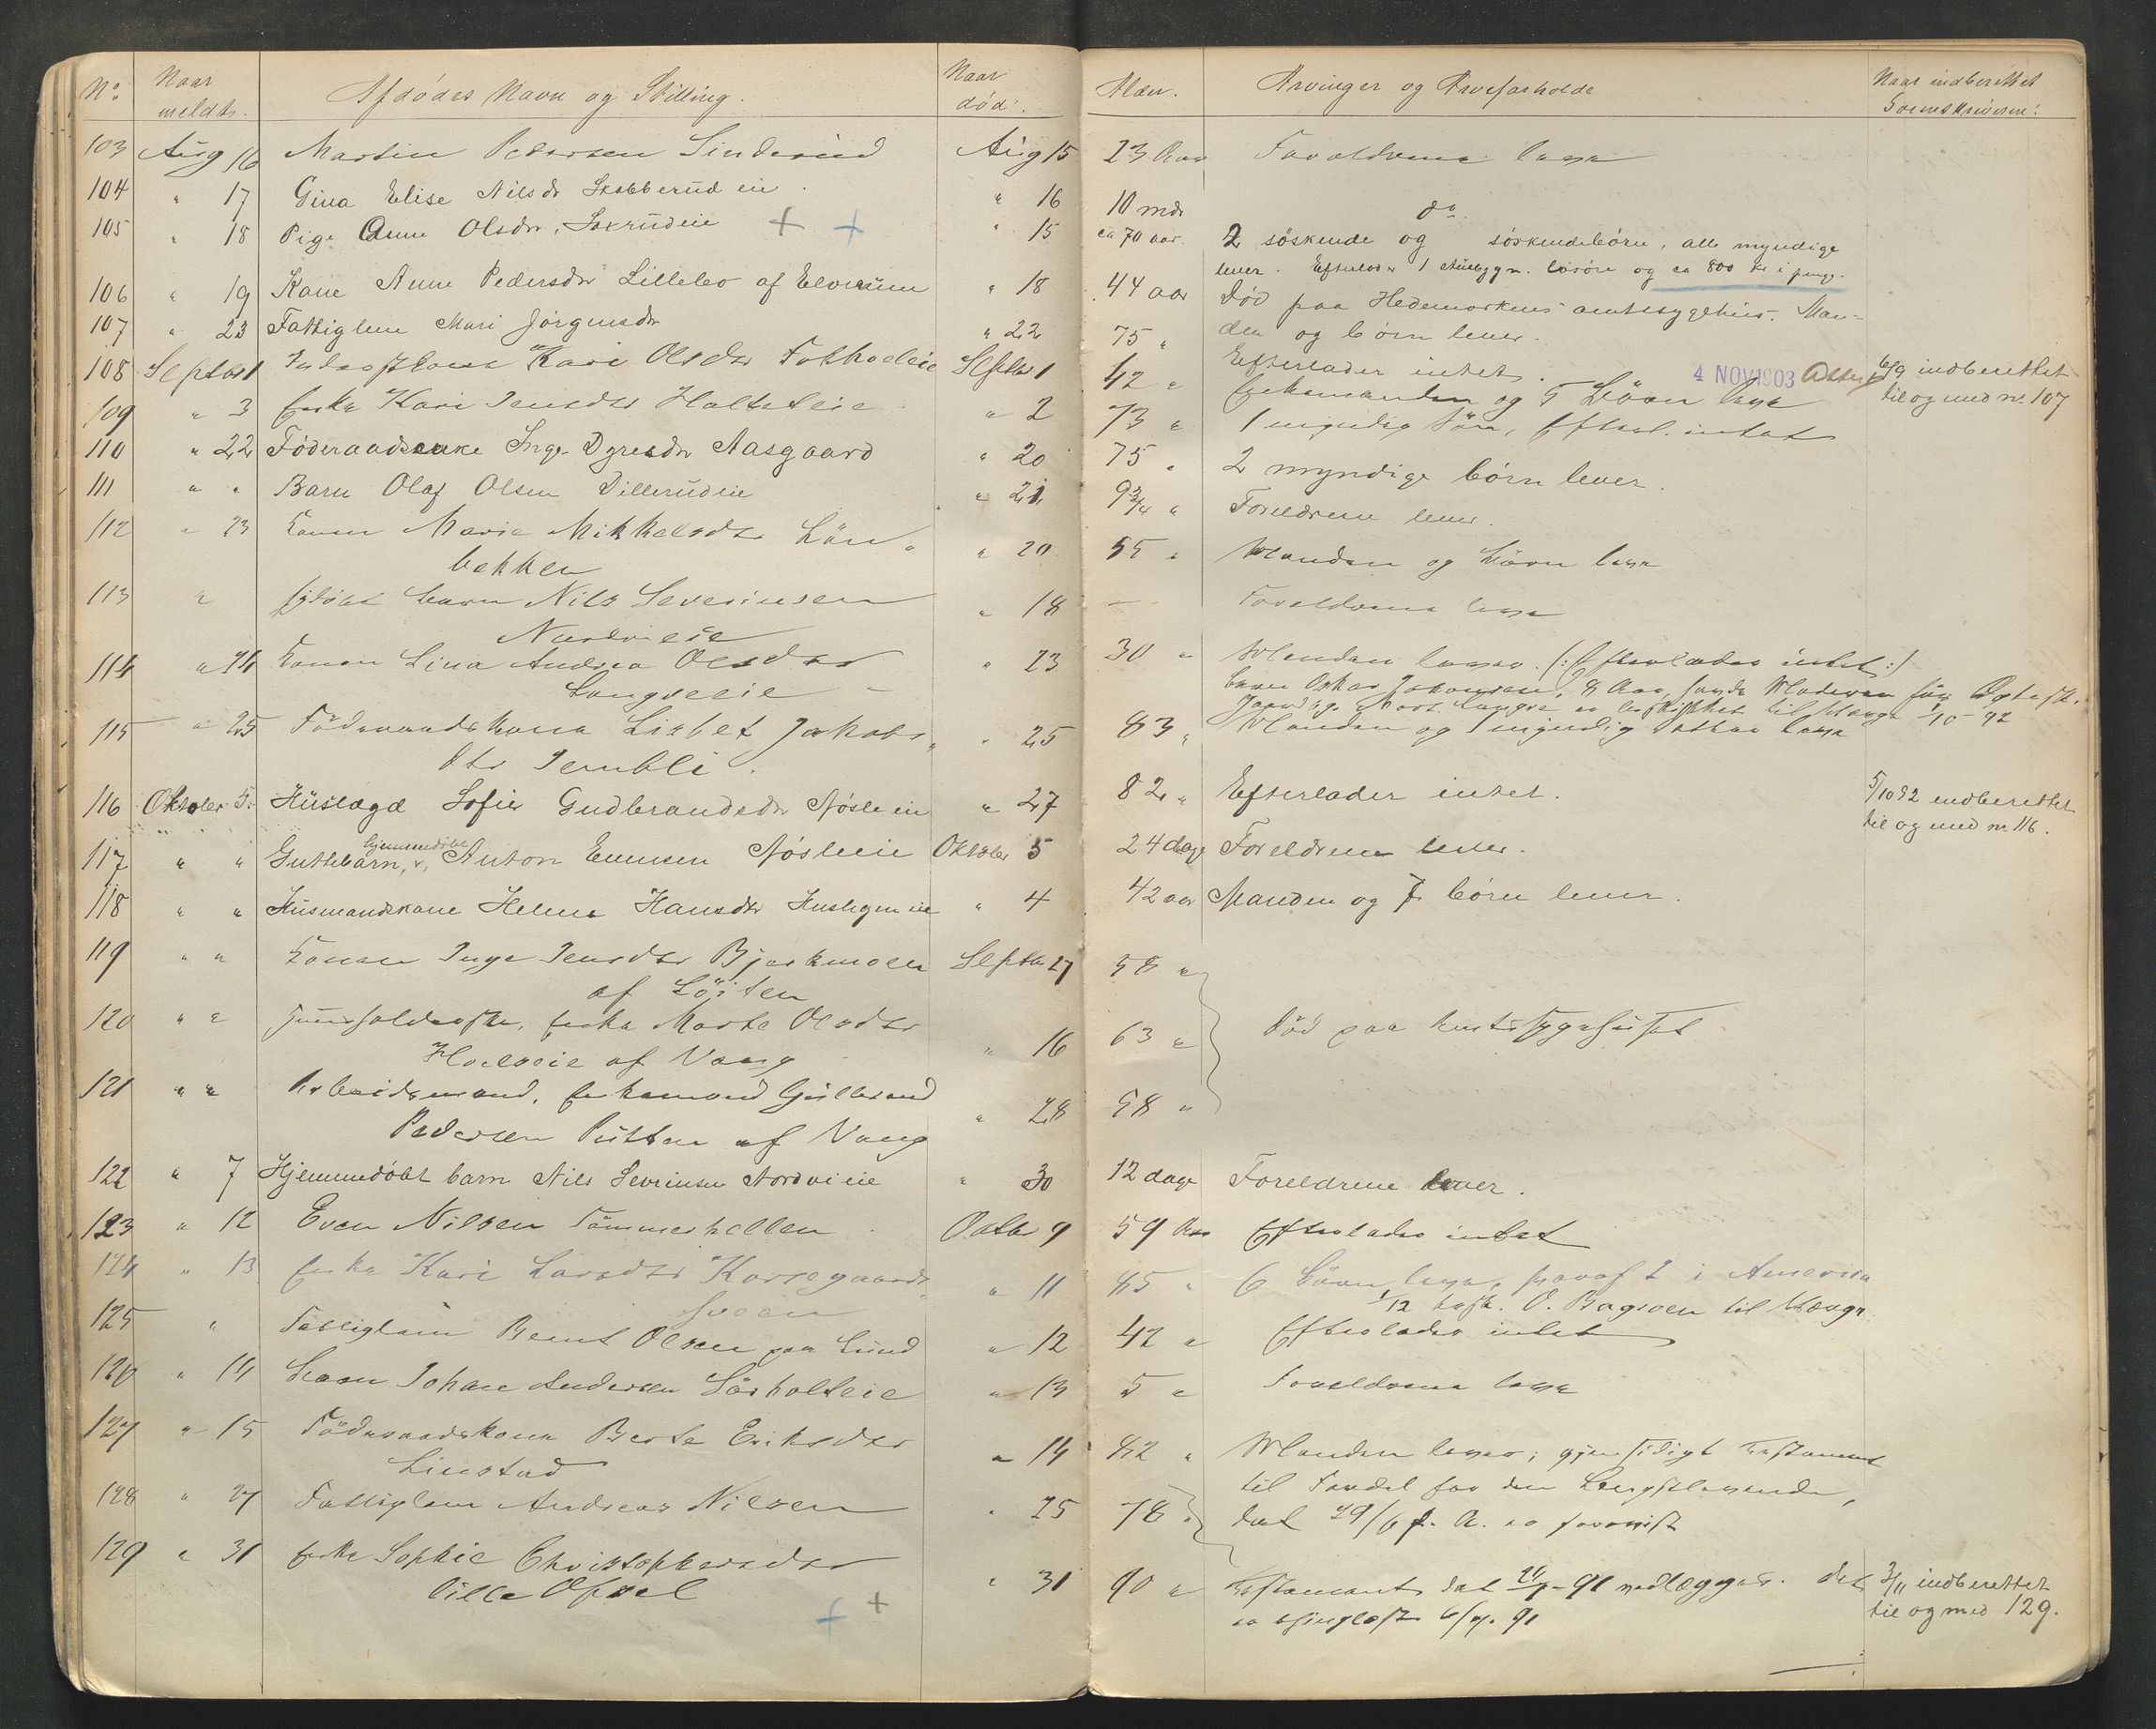 No. Naar meldt. Afdødes Navn og Stilling. Naar død. Alder. Arvinger og Arveforholde Naar indberettet Sorenskriveren:
103 Aug 16 Martin Pedersen Sinderud Aug 15 23 Aar Forældrene lever
104 " 17 Gina Elise Nilsdr Skobberud eie " 16 10 mdr do
105 " 18 Pige Anne Olsdr, + + " 15 ca 70 aar. 2 søskende og søskendebørn, alle myndige
lever. Efterlader 1 løsøre og ca 800 kr i peng.
106 " 19 Kone Anne Pedersdr Lillebo af Elverum " 18 44 aar Død paa Hedemarkens amtssygehus. Man-
den og børn lever.
107 " 23 Fattiglem Mari Jørgensdr " 22 75 " Efterlader intet. 4 NOV 1903 6/9 indberettet
til og med nr. 107
108 Septbr 1 Kari Olsdr Septbr 1 42 " Enkemanden og 5 Börn lever
109 " 3 Enke Kari Jensdr Holtseteie " 2 73 " 1 myndig Sön, Efterl. intet
110 " 22 Føderaadsenke Inge Dyresdr Aasgaard " 20 75 " 2 myndige børn lever.
111 " " Barn Olaf Olsen Dillerudeie " 21 9 3/4 " Forældrene lever.
112 " 23 Konen Marie Mikkelsdr Lön-
bekken " 20 55 " Manden og Börn lever
113 " barn Nils Severinsen
Nordvieie " 18 — Forældrene lever
114 " 24 Konen Lina Andrea Olsdr
" 23 30 " Manden lever. (: Efterlader intet :)
Oskar Johansen, 8 Aar,
til Værge 1/10-92
115 " 25 Föderaadskone Lisbet Jakobs-
dtr Jembli. " 25 83 " Manden og 1 myndig Datter lever
116 Oktober 5. Huslægd Sofie Gudbrandsdr Nøsleeie " 27 82 " Efterlader intet. 5/10 92 indberettet
til og med nr 116.
117 " " Guttebarn, hjemmedøbt, Anton Evensen Nøsleeie Oktober 5 24 dage Forældrene lever.
118 " " Husmandskone Helene Hansdr " 4 42 aar Manden og 7 børn lever.
119 " " Konen Inge Jensdr Bjerkmoen
af Löiten Septbr 27 58 "
120 " " enke Marte Olsdr
af Vang " 16 63 " Död paa Amtssygehuset
121 " " Arbeidsmand, enkemand Gulbrand
Pedersen Putten af Vang " 28 58 "
122 " 7 Hjemmedøbt barn Nils Sevrinsen Nordvieie " 30 12 dage Forældrene lever.
123 " 12 Even Nilsen Tömmerhellen Octbr 9 59 Aar Efterlader intet
124 " 13 Enke Kari Larsdr Korsegaards-
sveen " 11 85 " 6 Börn lever, hvoraf 2 i Amerika
1/12 O. Bagroen til Værge
125 " Fattiglem Bernt Olsen paa Lund " 12 42 " Efterlader intet
126 " 14 Barn Johan Andersen Sörholteie " 13 5 " Forældrene lever
127 " 15 Föderaadskone Berte Eriksdr
Linstad " 14 82 " Manden lever; gjensidigt Testament
til Fordel for den Længstlevende,
dat 29/6 f. A. er forevist
128 " 27 Fattiglem Andreas Nilsen " 25 78 "
129 " 31 Enke Sophie Christophersdr
lille Opsal + + " 31 90 " Testament dat -91 vedlægges. det
er thinglæst 91 3/11 indberettet
til og med 129.